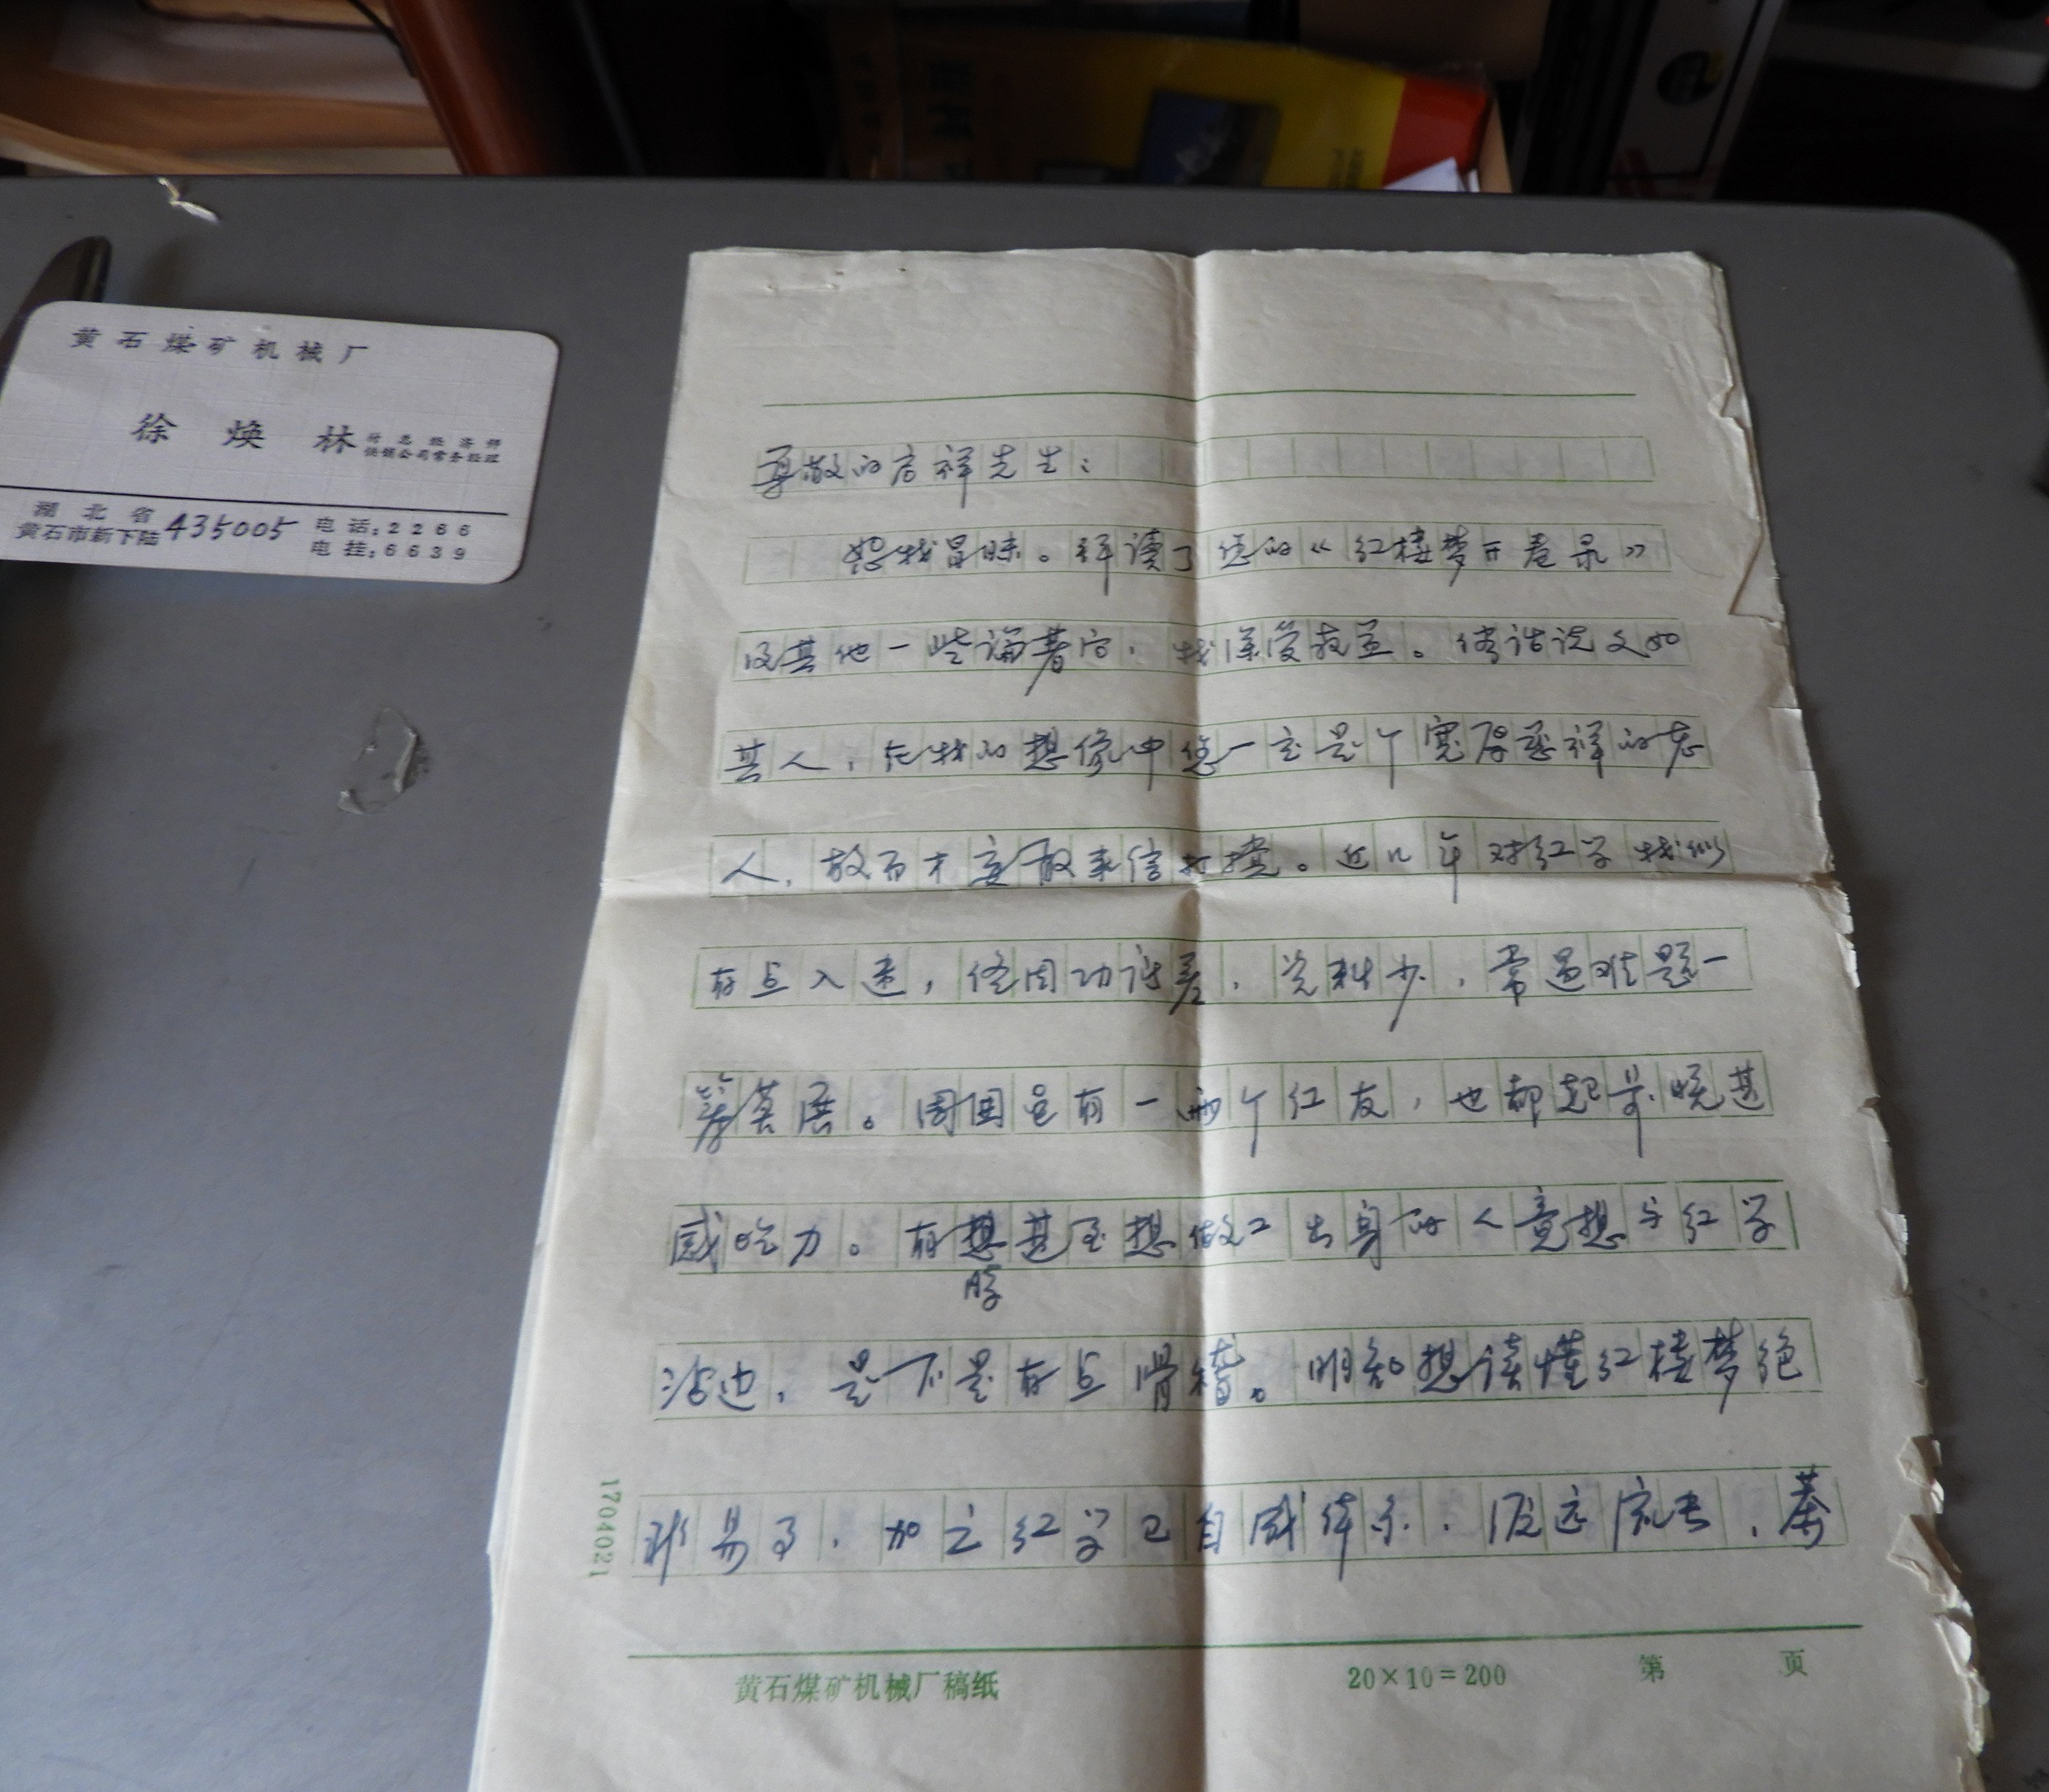 黄石煤矿机械厂
徐焕林
供销公司常务经理
湖北省
黄石市新下陆 435005
电话:2266
电挂:6639
尊敬的 祥先生:
恕我冒昧。拜读了您的《红楼梦开卷录》
及其他一些论著后,我深受教益。俗话说文如
其人,在我的想像中您一定是个宽厚慈祥的老
人,故而才 敢来信打搅。近几年对红学我似
有点入迷,终因功 差,资料少,常遇难题一
筹莫展。周围虽有一两个红友,也都起 晚甚
感吃力。有 甚至想做工出身的人竟想与红学
时
沾边,是不是有点滑稽。明知想读懂红楼梦绝
非易事,加之红学已自成体系,源远流长,
17040021
黄石煤矿机械厂稿纸
20×10=200
第 页